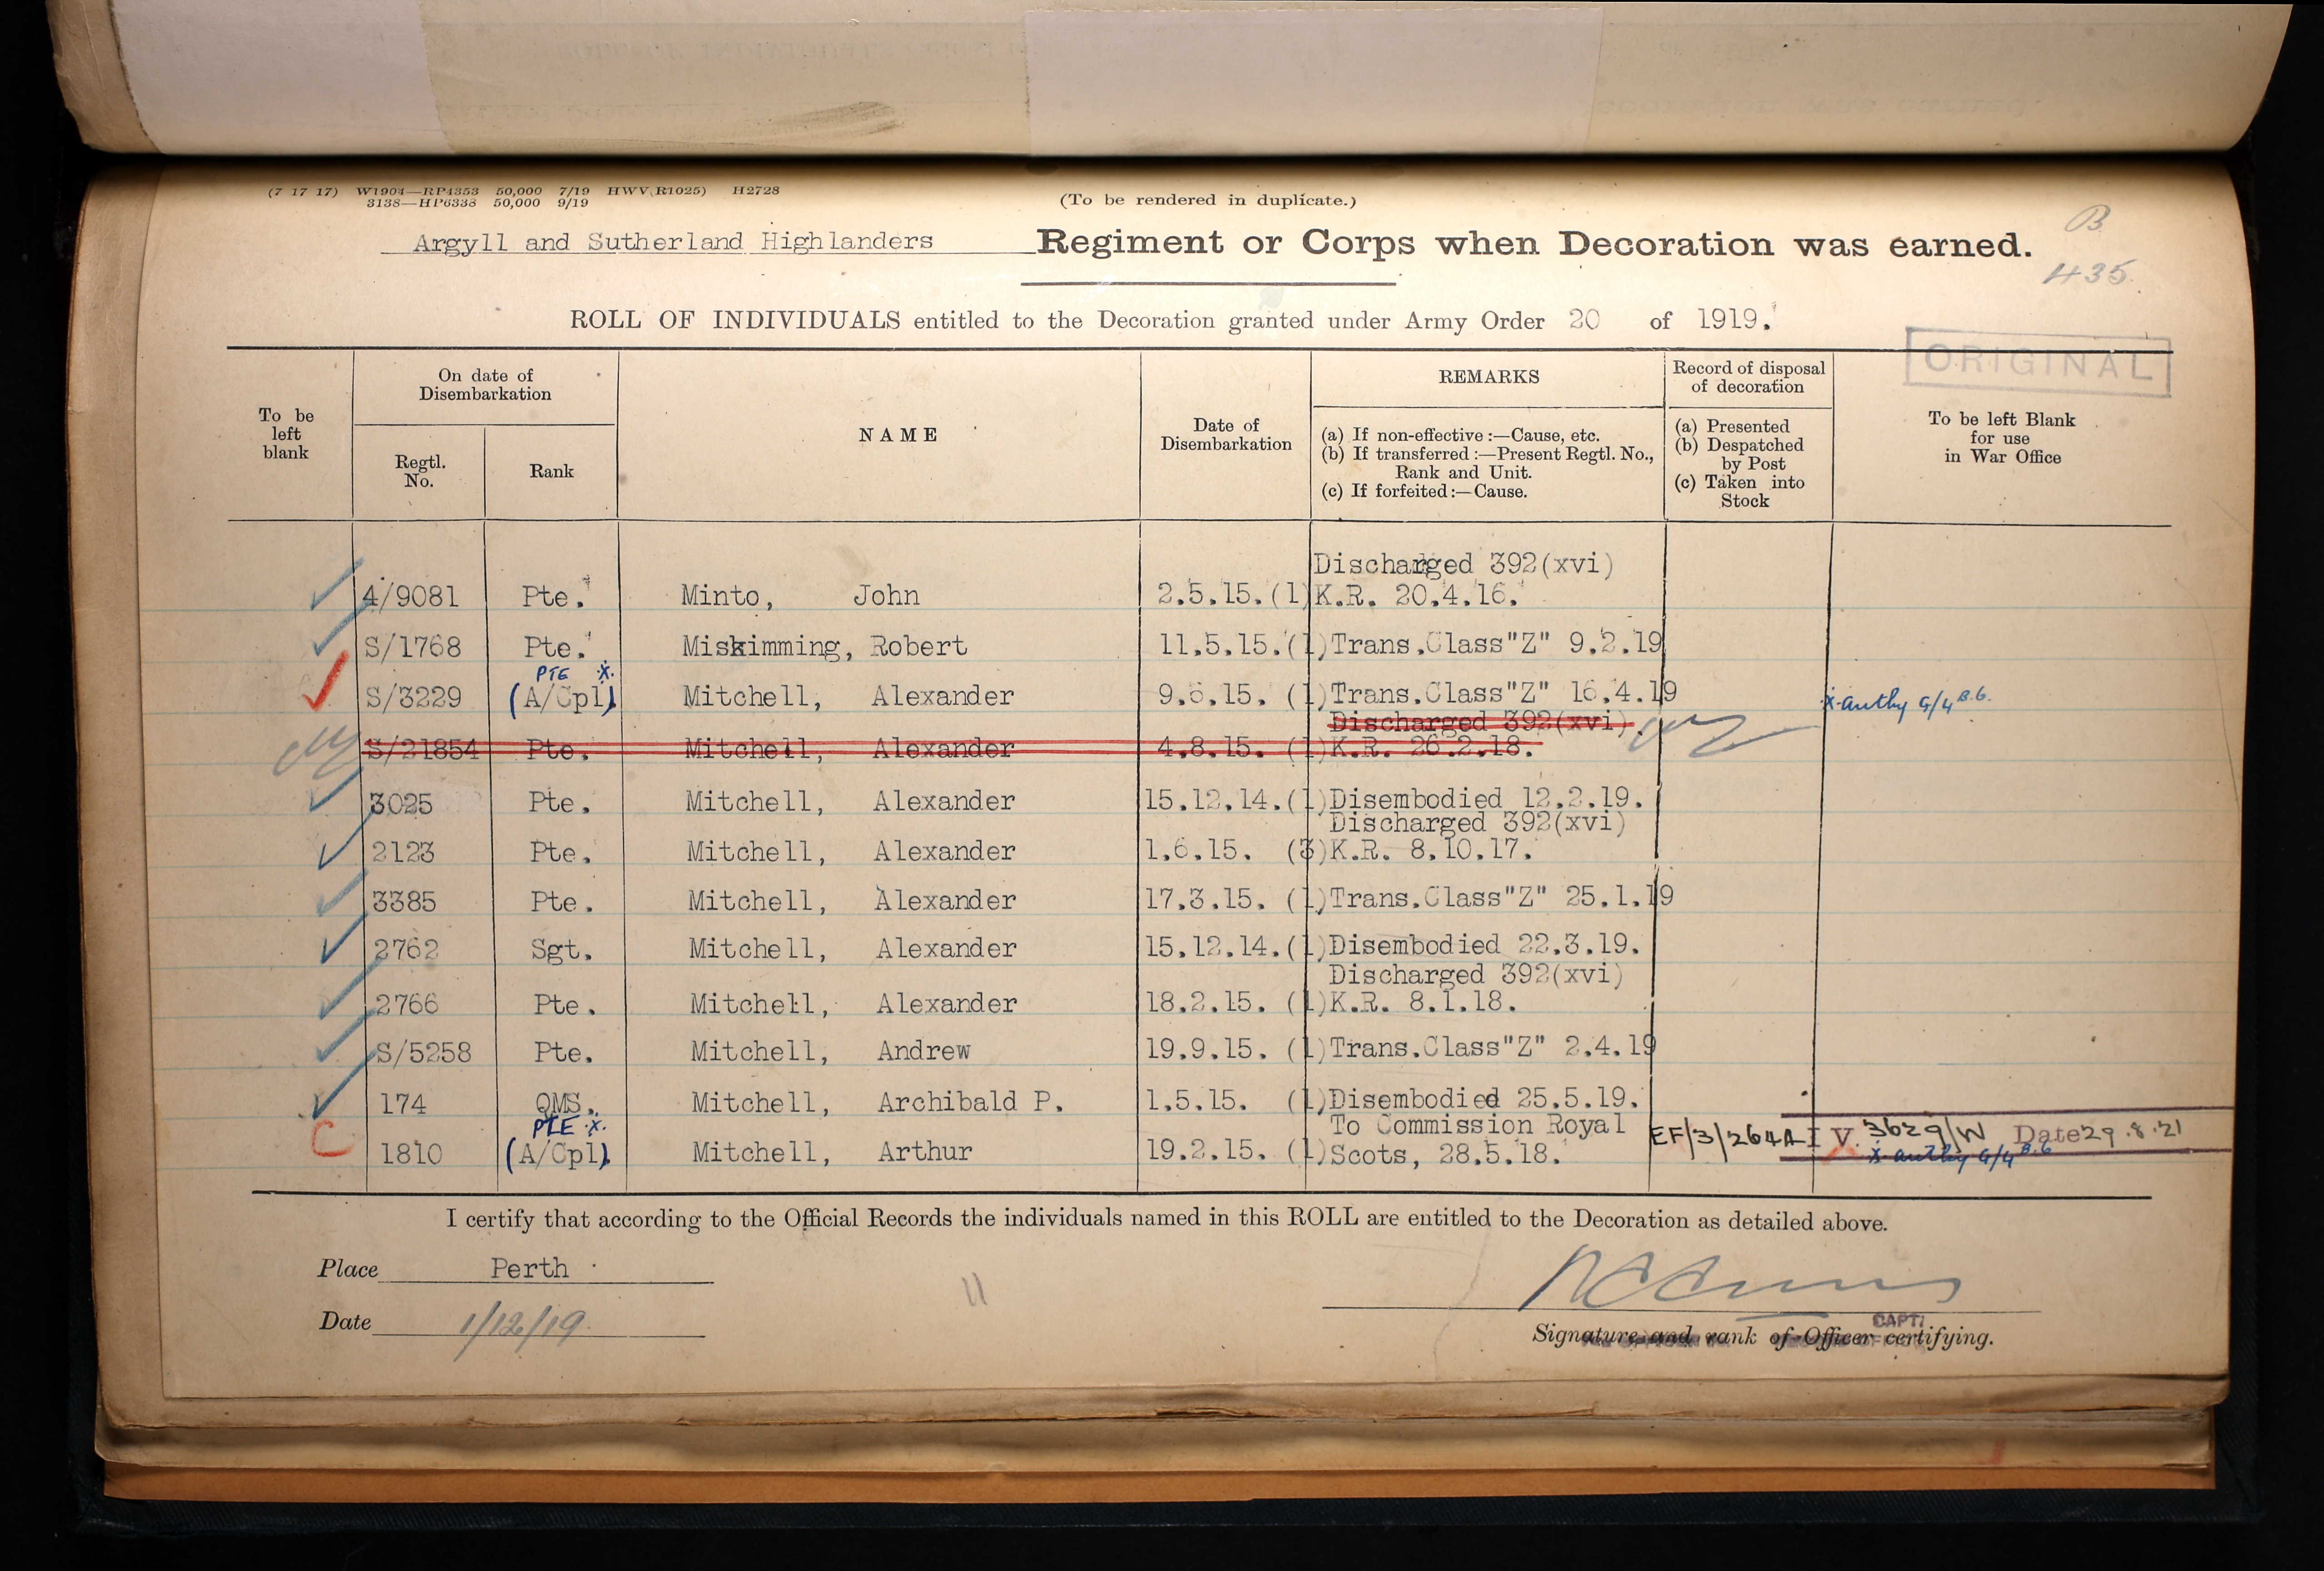 (7 17 17) W1904—RP4353 50,000 7/19 HWV(R1025) H2728
3138—HP6338 50,000 9/19
(To be rendered in duplicate.)
B
Argyll and Sutherland Highlanders Regiment or Corps when Decoration was earned.
435.
ROLL OF INDIVIDUALS entitled to the Decoration granted under Army Order 20 of 1919.
ORIGINAL
To be left blank
On date of Disembarkation
Regtl. No.
Rank
NAME
Date of Disembarkation
REMARKS
(a) If non-effective:—Cause, etc.
(b) If transferred:—Present Regtl. No., Rank and Unit.
(c) If forfeited:—Cause.
Record of disposal of decoration
(a) Presented
(b) Despatched by Post
(c) Taken into Stock
To be left Blank for use in War Office
Discharged 392(xvi)
4/9081 Pte. Minto, John 2.5.15.(1) K.R. 20.4.16.
S/1768 Pte. Miskimming, Robert 11.5.15.(1) Trans.Class"Z" 9.2.19
PTE x.
S/3229 (A/Cpl) Mitchell, Alexander 9.6.15. (1) Trans.Class"Z" 16.4.19 x authy G/4 B.6.
Discharged 392(xvi).
S/21854 Pte. Mitchell, Alexander 4.8.15. (1) K.R. 26.2.18.
3025 Pte. Mitchell, Alexander 15.12.14.(1) Disembodied 12.2.19.
Discharged 392(xvi)
2123 Pte. Mitchell, Alexander 1.6.15. (3) K.R. 8.10.17.
3385 Pte. Mitchell, Alexander 17.3.15. (1) Trans.Class"Z" 25.1.19
2762 Sgt. Mitchell, Alexander 15.12.14.(1) Disembodied 22.3.19.
Discharged 392(xvi)
2766 Pte. Mitchell, Alexander 18.2.15. (1) K.R. 8.1.18.
S/5258 Pte. Mitchell, Andrew 19.9.15. (1) Trans.Class"Z" 2.4.19
174 QMS. Mitchell, Archibald P. 1.5.15. (1) Disembodied 25.5.19.
PTE x. To Commission Royal
C 1810 (A/Cpl) Mitchell, Arthur 19.2.15. (1) Scots, 28.5.18. EF/3/264A I V. 3629/W Date 29.8.21
x authy G/4 B.6
I certify that according to the Official Records the individuals named in this ROLL are entitled to the Decoration as detailed above.
Place Perth
Date 1/12/19.
CAPT.
Signature and rank of Officer certifying.